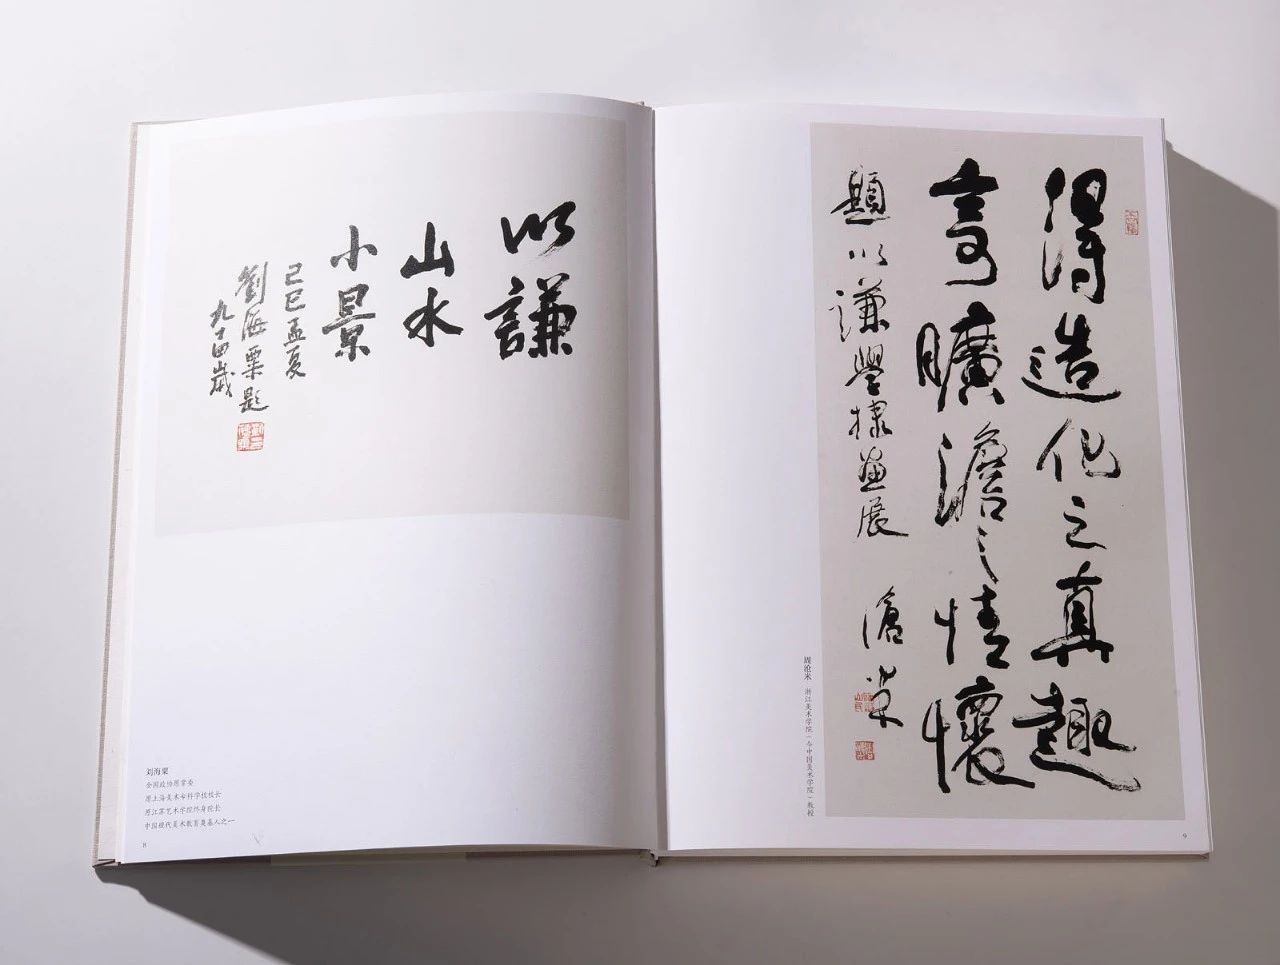 以謙
山水
小景
己巳孟夏
劉海粟題
九十四歲
刘海粟
全国政协原常委
原上海美术专科学校校长
原江苏艺术学院终身院长
中国现代美术教育奠基人之一
8
得造化之真趣
寄曠澹之情懷
題以謙學棣畫展 滄米
周沧米 浙江美术学院（今中国美术学院）教授
9